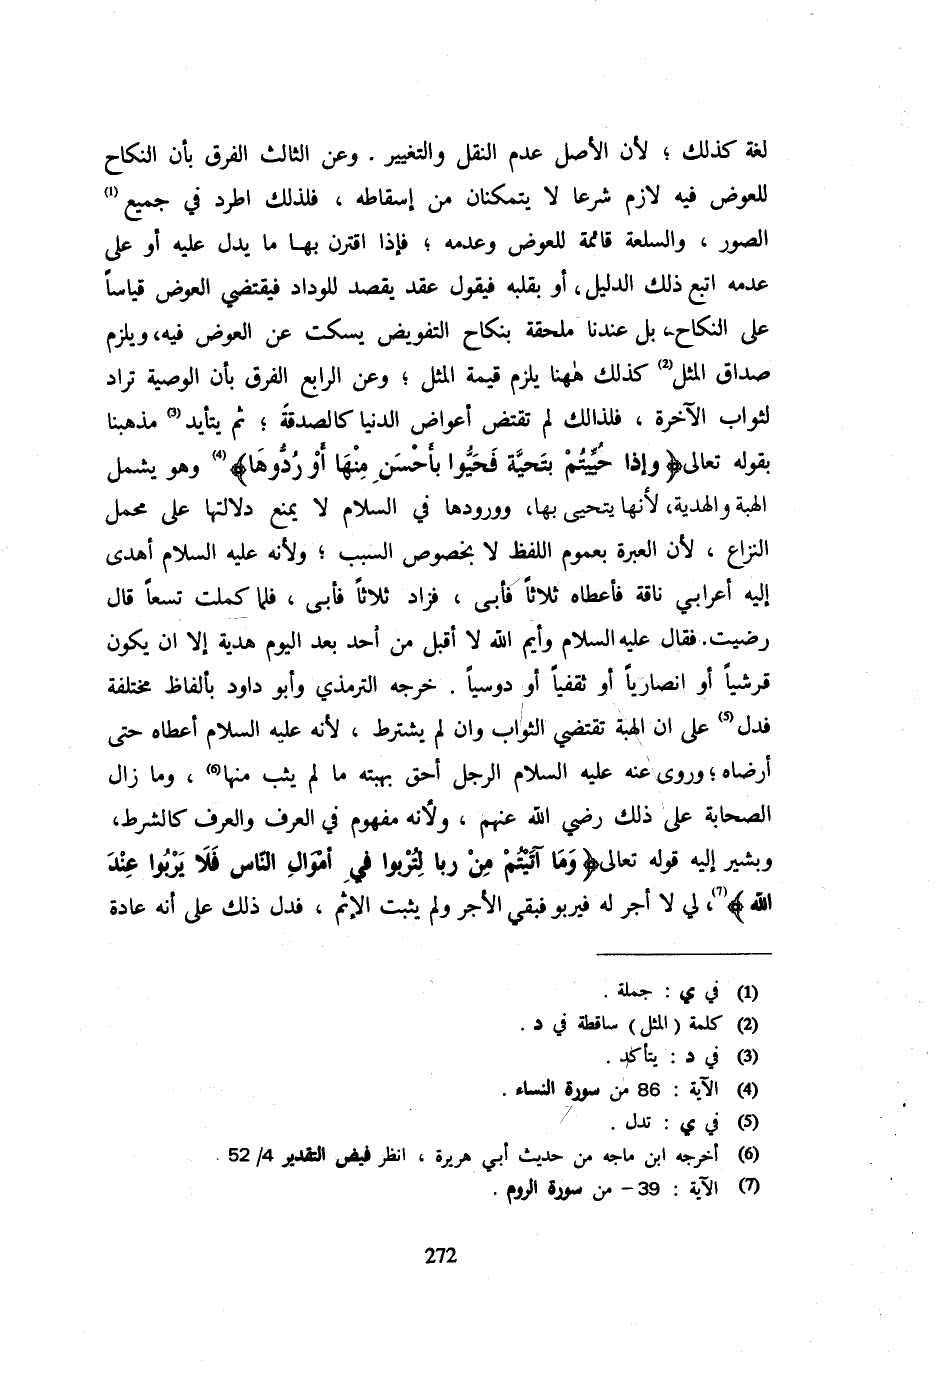 لغة كذلك ؛ لأن الأصل عدم النقل والتغيير . وعن الثالث الفرق بأن النكاح
للعوض فيه لازم شرعا لا يتمكنان من إسقاطه ، فلذلك اطرد في جميع (1)
الصور ، والسلعة قائمة للعوض وعدمه ؛ فإذا اقترن بها ما يدل عليه أو على
عدمه اتبع ذلك الدليل، أو بقلبه فيقول عقد يقصد للوداد فيقتضي العوض قياساً
على النكاح، بل عندنا ملحقة بنكاح التفويض يسكت عن العوض فيه، ويلزم
صداق المثل (2) كذلك هٰهنا يلزم قيمة المثل ؛ وعن الرابع الفرق بأن الوصية تراد
لثواب الآخرة ، فلذالك لم تقتض أعواض الدنيا كالصدقة ؛ ثم يتأيد (3) مذهبنا
بقوله تعالى ﴿ وإذا حُيِّيتُمْ بتَحيَّة فَحَيُّوا بأَحْسَنِ مِنْهَا أَوْ رُدُّوهَا﴾ (4) وهو يشمل
الهبة والهدية، لأنها يتحيى بها، وورودها في السلام لا يمنع دلالتها على محمل
النزاع ، لأن العبرة بعموم اللفظ لا بخصوص السبب ؛ ولأنه عليه السلام أهدى
إليه أعرابي ناقة فأعطاه ثلاثاً فأبى ، فزاد ثلاثاً فأبى ، فلما كملت تسعاً قال
رضيت. فقال عليه السلام وأيم الله لا أقبل من أحد بعد اليوم هدية إلا ان يكون
قرشياً أو انصارياً أو ثقفياً أو دوسياً . خرجه الترمذي وأبو داود بألفاظ مختلفة
فدل (5) على ان الهبة تقتضي الثواب وان لم يشترط ، لأنه عليه السلام أعطاه حتى
أرضاه ؛ وروى عنه عليه السلام الرجل أحق بهبته ما لم يثب منها (6) ، وما زال
الصحابة على ذلك رضي الله عنهم ، ولأنه مفهوم في العرف والعرف كالشرط،
ويشير إليه قوله تعالى ﴿ وَمَا آتَيْتُمْ مِنْ ربا لِتُرْبوا في أمْوَالِ النّاس فَلَا يَرْبُوا عِنْدَ
الله ﴾ (7)، لي لا أجر له فيربو فبقي الأجر ولم يثبت الإثم ، فدل ذلك على أنه عادة
(1) في ي : جملة .
(2) كلمة ( المثل ) ساقطة في د .
(3) في د : يتأكد .
(4) الآية : 86 من سورة النساء .
(5) في ي : تدل .
(6) أخرجه ابن ماجه من حديث أبي هريرة ، انظر فيض التقدير 4/ 52 .
(7) الآية : 39 – من سورة الروم .
272